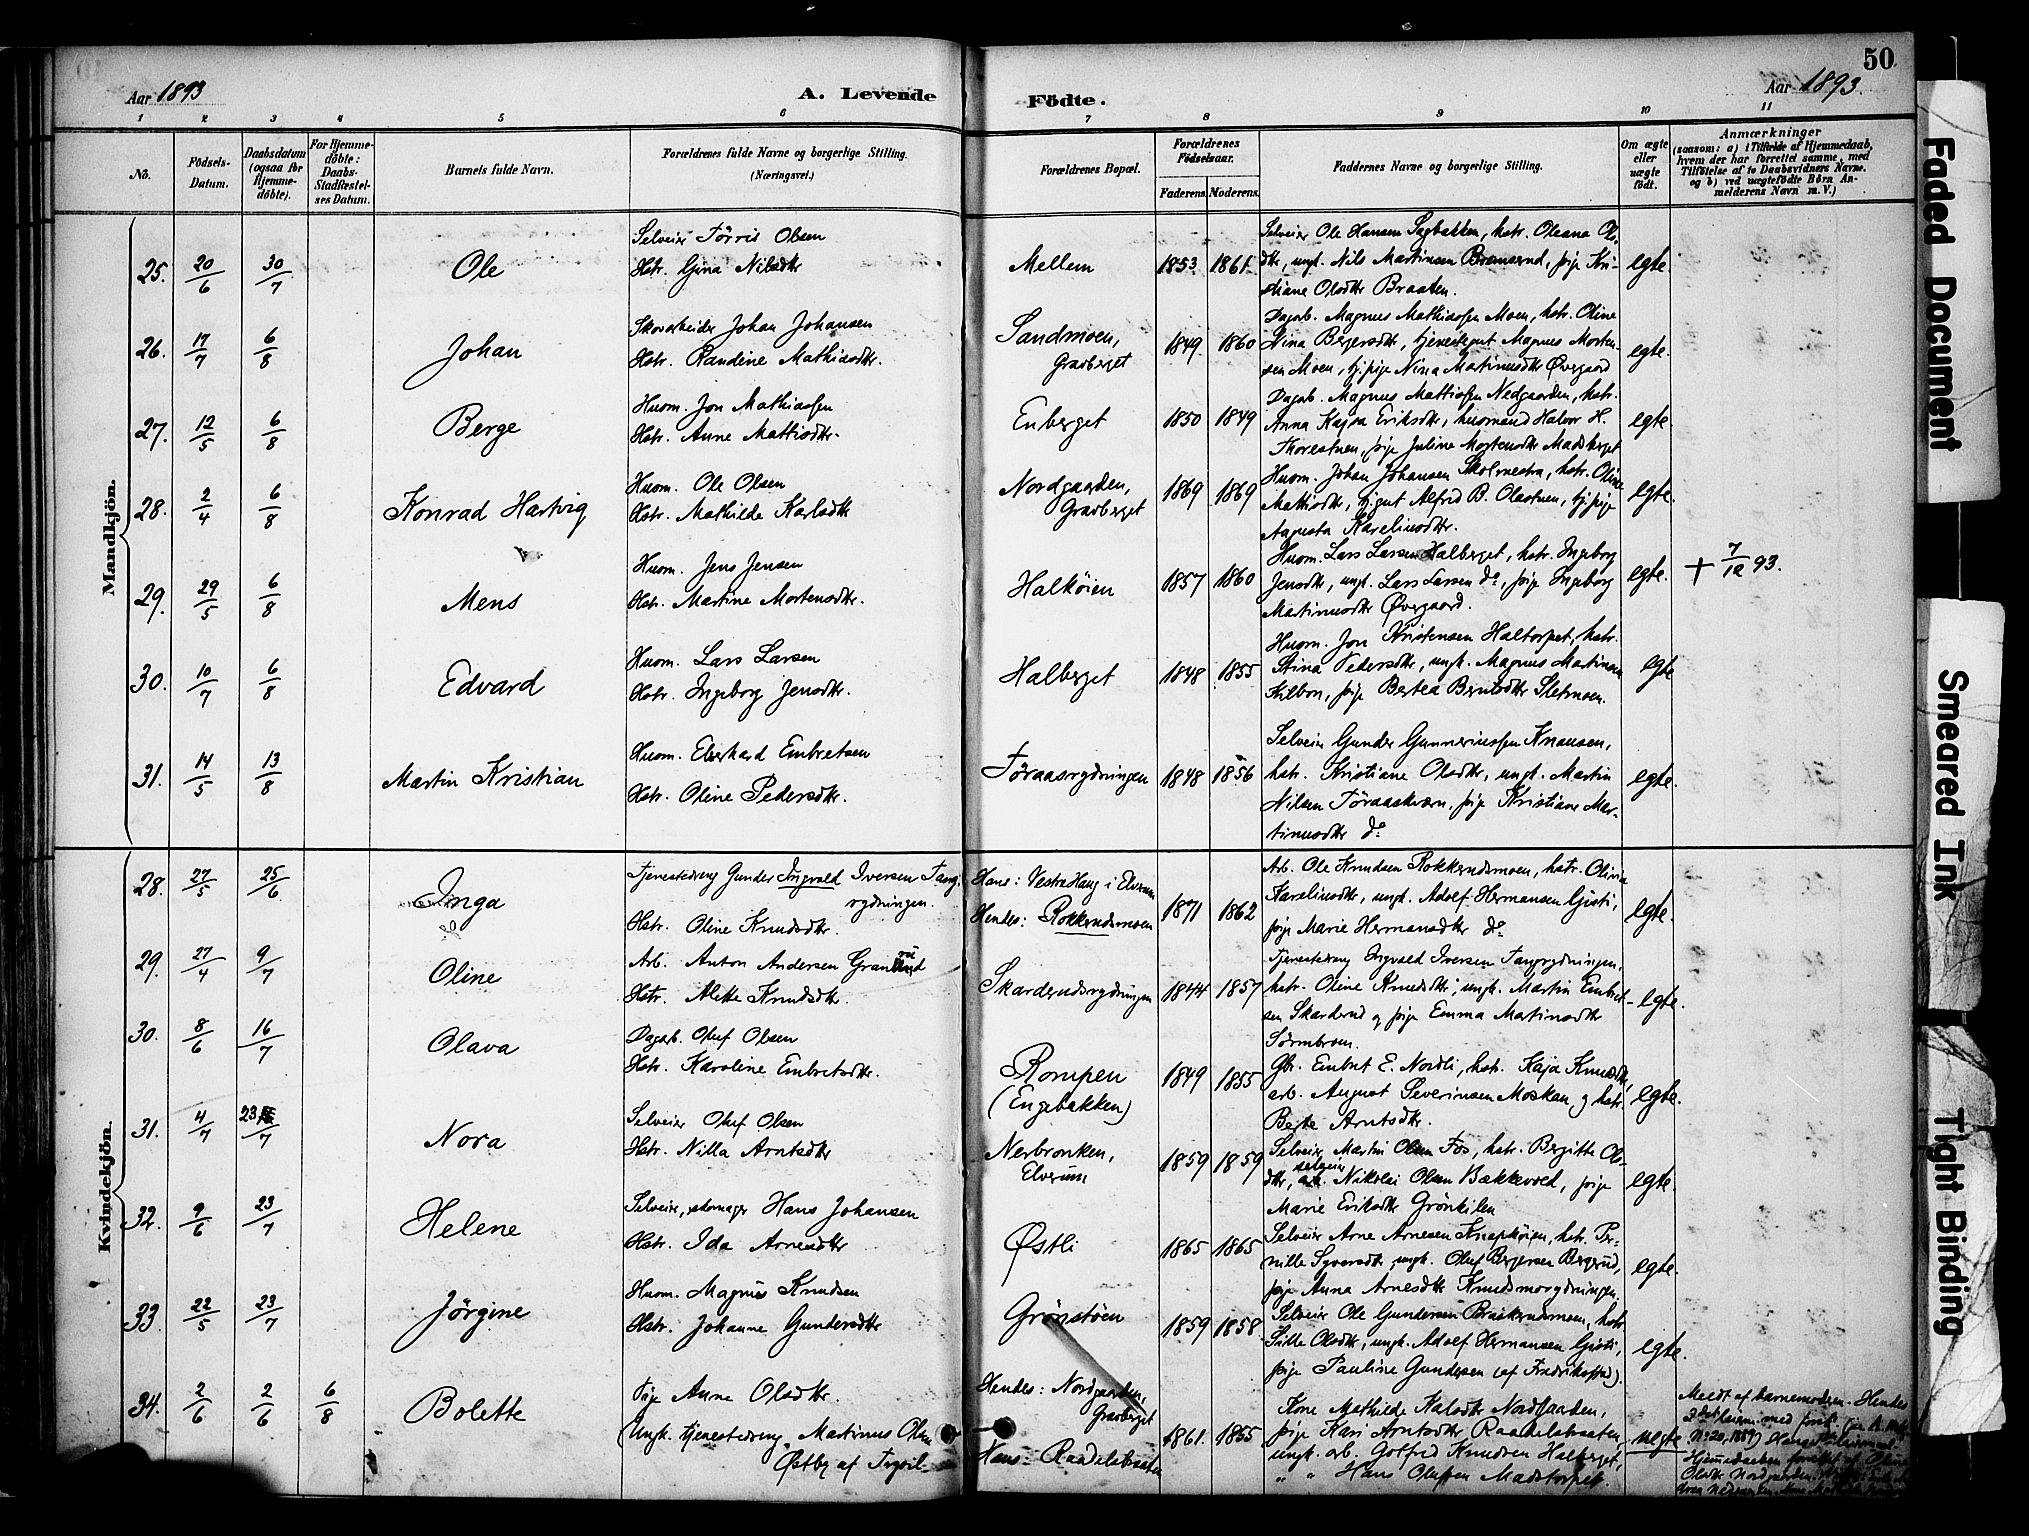 50
Aar 1893
A. Levende
Födte.
Aar 1893.
1 2 3 4 5 6 7 8 9 10 11
No.
Födsels-Datum.
Daabsdatum (ogsaa for Hjemme-döbte).
For Hjemme-döbte: Daabs-Stadfæstel-ses Datum.
Barnets fulde Navn.
Forældrenes fulde Navne og borgerlige Stilling. (Næringsvei.)
Forældrenes Bopæl.
Forældrenes Födselsaar.
Faderens.
Moderens.
Faddernes Navne og borgerlige Stilling.
Om ægte eller uægte födt.
Anmærkninger
(saasom: a) i Tilfælde af Hjemmedaab,
hvem der har forrettet samme, med
Tilföielse af to Daabsvidners Navne.
og b) ved uægtefödte Börn An-
melderens Navn m. V.)
Mandkjön.
25. 20/6 30/7 Ole
Selveier Törris Olsen
Hstr. Gina Nilsdtr
Mellem 1853 1861
Selveier Ole Hansen Sagbakken, hstr. Oleana Ols-
dtr, ungk. Nils Martinsen Bramserud, pige Kri-
stiane Olsdtr Braaten.
egte.
26. 17/7 6/8 Johan
Skovarbeider Johan Johansen
Hstr. Randine Mathiasdtr.
Sandmoen,
Gravberget
1849 1860
Dagarb. Magnus Mathiassen Moen, hstr. Oline
Stina Bergersdtr, tjenestegut Magnus Morten-
sen Moen, tj.pige Nina Martinusdtr Øvergaard
egte.
27. 12/5 6/8 Berge
Husm. Jon Mathiassen
Hstr. Anne Mattisdtr.
Enberget 1850 1849
Dagarb. Magnus Mattissen Nedgaarden, hstr.
Anna Kajsa Eriksdtr, husmand Halvor H.
Thorestuen, pige Juline Mortensdtr Madsberget
egte.
28. 2/4 6/8 Konrad Hartvig
Husm. Ole Olsen
Hstr. Mathilde Karlsdtr
Nordgaarden,
Gravberget
1869 1869
Husm. Johan Johansen Skolmestra, hstr. Oline
Mattisdtr, tj.gut Alfred B. Olastuen, tj.pige
Augusta Karelinsdtr.
egte.
29. 29/5 6/8 Mens
Husm. Jens Jensen
Hstr. Martine Mortensdtr.
Halkøien 1857 1860
Husm. Lars Larsen Halberget, hstr. Ingeborg
Jensdtr, ungk. Lars Larsen do, pige Ingeborg
Martinusdtr Øvergaard.
egte.
+ 7/12 93.
30. 10/7 6/8 Edvard
Husm. Lars Larsen
Hstr. Ingeborg Jensdtr.
Halberget 1848 1855
Husm. Jon Kristensen Haltorpet, hstr.
Stina Pedersdtr, ungk. Magnus Martinsen
Kilbon, pige Bertea Berntsdtr Sletmoen.
egte
31. 14/5 13/8 Martin Kristian
Husm. Eberhard Embretsen
Hstr. Oline Pedersdtr.
Töraasrydningen 1848 1856
Selveier Gunder Gunneriussen Knausen,
hstr. Kristiane Olsdtr, ungk. Martin
Nilsen Töraaskværn, pige Kristiane Mar-
tinusdtr do
egte.
Kvindekjön.
28. 27/5 25/6 Inga
Tjenestedreng Gunder Ingvald Iversen Tang-
rydningen.
Hstr. Oline Knudsdtr.
Hans: Vestre Haug i Elverum
Hendes: Rokkerudsmoen
1871 1862
Arb. Ole Knudsen Rokkerudsmoen, hstr. Olivia
Karelinsdtr, ungk. Adolf Hermansen Gjisti,
pige Marie Hermansdtr do
egte.
29. 27/4 9/7 Oline
Arb. Anton Andersen
Hstr. Alette Knudsdtr.
Skarderudsrydningen 1844 1857
Tjenestedreng Ingvald Iversen Tangrydningen,
hstr. Oline Knudsdtr, ungk. Martin Embret-
sen Skarderud og pige Emma Martinsdtr
Sörmbroen.
egte.
30. 8/6 16/7 Olava
Dagarb. Oluf Olsen
Hstr. Karoline Embretsdtr.
Rompen
(Engebakken)
1849 1855
Gbr. Embret E. Nordli, hstr. Kaja Knudsdtr,
arb. August Severinsen Moskau og hstr
Berte Arntsdtr.
egte.
31. 4/7 23/7 Nora
Selveier Oluf Olsen
Hstr. Nilla Arntsdtr
Nerbronken,
Elverum
1859 1859
Selveier Martin Olsen Fos, hstr. Bergitte Ols-
dtr, selveier Nikolai Olsen Bækkevold, pige
Marie Eriksdtr Grönkilen
egte.
32. 9/6 23/7 Helene
Selveier, skomager Hans Johansen
Hstr. Ida Arnesdtr
Østli 1865 1865
Selveier Arne Arnesen Knapköien, hstr. Per-
nille Syversdtr, ungk. Oluf Bergersen Bergerud,
pige Anna Arnesdtr Knudsmorydningen.
egte.
33. 22/5 23/7 Jörgine
Husm. Magnus Knudsen
Hstr. Johanne Gundersdtr
Grönstöen 1859 1858
Selveier Ole Gundersen Braskerudsmoen, hstr
Sille Olsdtr, ungk. Adolf Hermansen Gjisti,
pige Pauline Gundersen (af Fredrikshd).
egte.
34. 2/6 2/6 6/8 Bolette
Pige Anne Olsdtr.
(Ungk. tjenestedreng Martinus Olsen
Østby af Trysil
Hendes: Nordgaarden,
Gravberget
Hans: Raadelsbraaten
1861. 1855
Kone Mathilde Kalsdtr Nordgaarden,
pige Kari Arntsdtr Raadelsbraaten,
ungk. arb. Gotfred Knudsen Halberget,
" " Hans Olufsen Madstorpet.
uegte
Meldt af barnemoderen. Hendes
Faded Document
Smeared Ink
Tight Binding